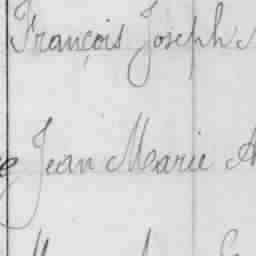 François Joseph
Jean Marie